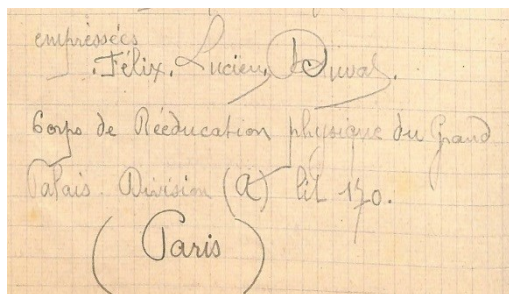 empressées
. Félix. Lucien, Duval.
Corps de Rééducation physique du Grand
Palais. Division (A) lit 170.
(Paris)